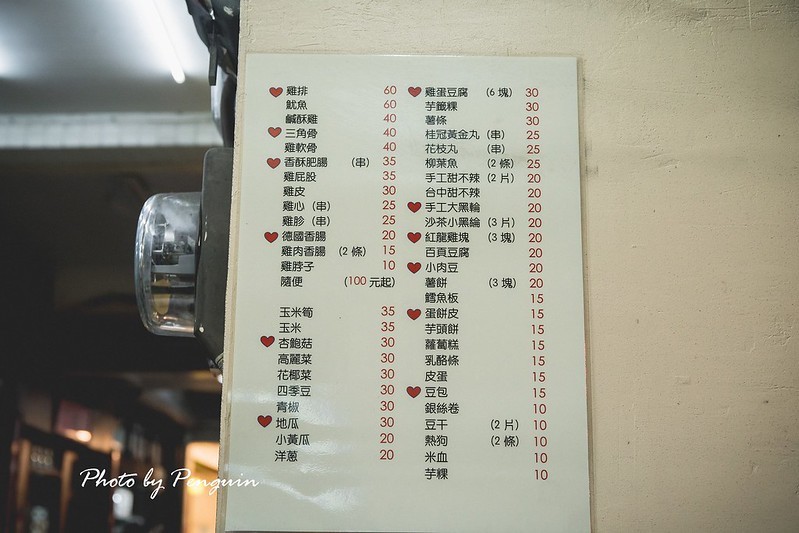 雞排 60
魷魚 60
鹹酥雞 40
三角骨 40
雞軟骨 40
香酥肥腸 (串) 35
雞屁股 35
雞皮 30
雞心 (串) 25
雞胗 (串) 25
德國香腸 20
雞肉香腸 (2 條) 15
雞脖子 10
隨便 (100 元起)
玉米筍 35
玉米 35
杏鮑菇 30
高麗菜 30
花椰菜 30
四季豆 30
青椒 30
地瓜 30
小黃瓜 20
洋蔥 20
雞蛋豆腐 (6 塊) 30
芋籤粿 30
薯條 30
桂冠黃金丸 (串) 25
花枝丸 (串) 25
柳葉魚 (2 條) 25
手工甜不辣 (2 片) 20
台中甜不辣 20
手工大黑輪 20
沙茶小黑輪 (3 片) 20
紅龍雞塊 (3 塊) 20
百頁豆腐 20
小肉豆 20
薯餅 (3 塊) 20
鱈魚板 15
蛋餅皮 15
芋頭餅 15
蘿蔔糕 15
乳酪條 15
皮蛋 15
豆包 15
銀絲卷 10
豆干 (2 片) 10
熱狗 (2 條) 10
米血 10
芋粿 10
Photo by Penguin